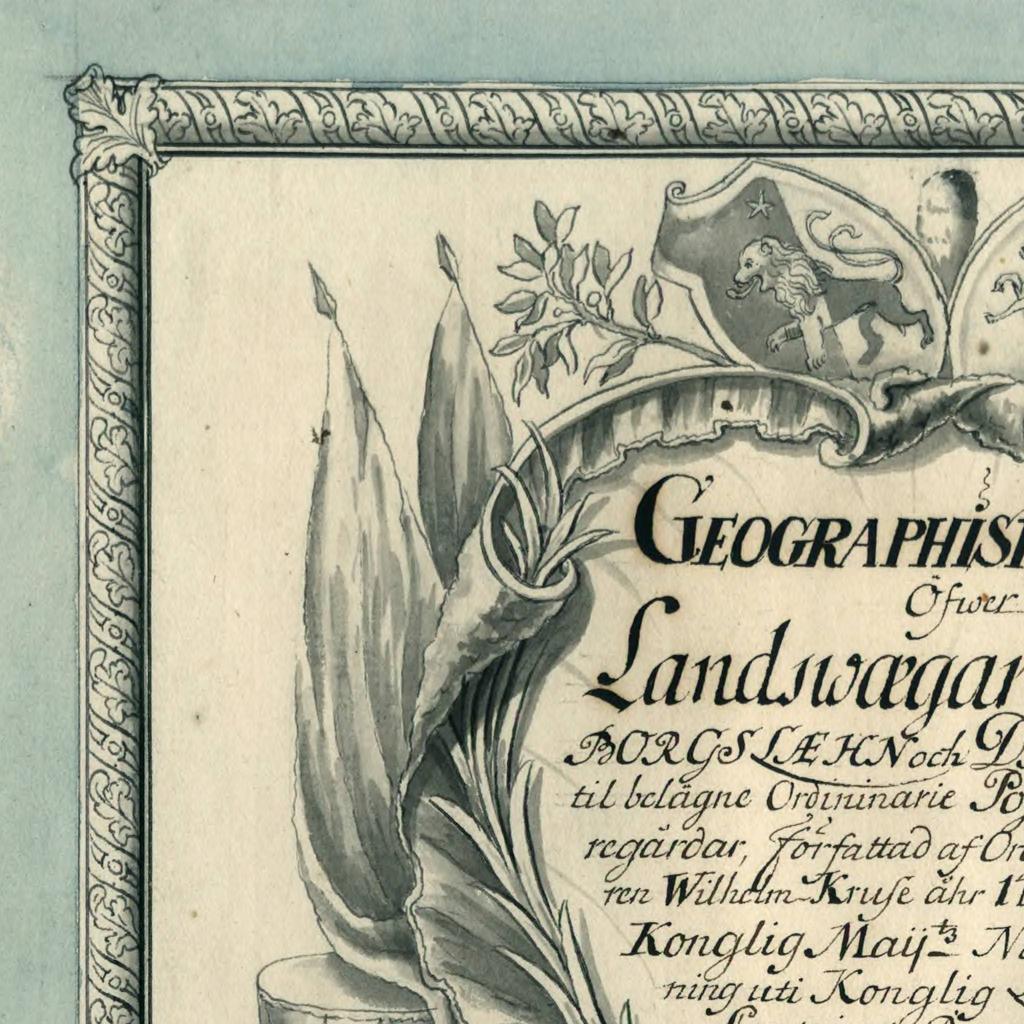 GEOGRAPHIS
Öfwer
Landswægar
BORGS LÆHN och D
til belägne Ordininarie Po
regårdar, författad af On
ren Wilhelm Kruse åhr 17
Konglig Maij:tz N
ning uti Konglig